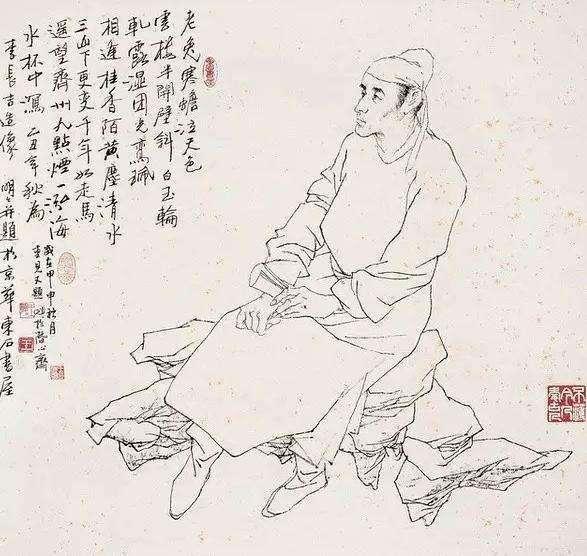 老兔寒蟾泣天色
雲樓半開壁斜白玉輪
軋露湿团光鸞珮
相逢桂香陌黄塵清水
三山下更变千年如走馬
遥望齊州九點煙一泓海
水杯中瀉 乙丑年秋為
李長吉造像 明々并題於京華東石書屋
歲在甲申秋月
重見又題 於潛心齋